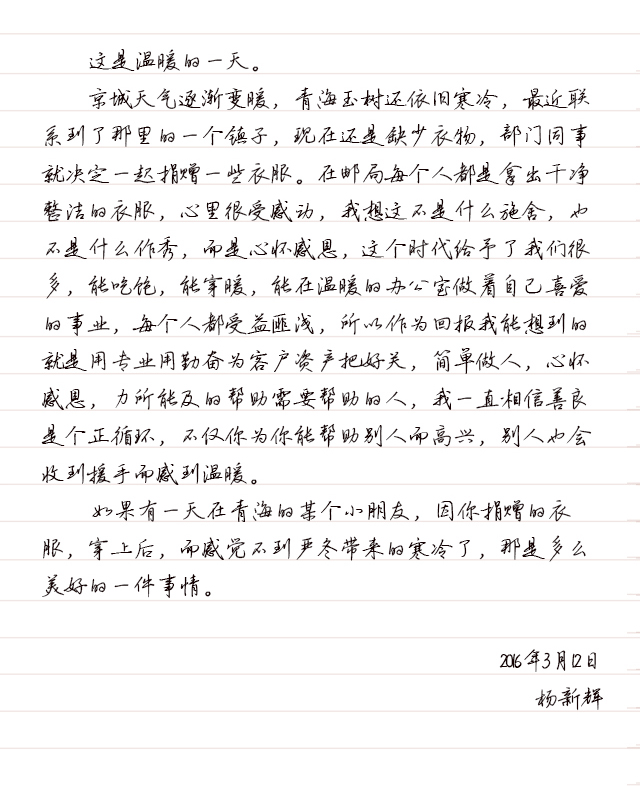 这是温暖的一天。
京城天气逐渐变暖，青海玉树还依旧寒冷，最近联
系到了那里的一个镇子，现在还是缺少衣物，部门同事
就决定一起捐赠一些衣服。在邮局每个人都是拿出干净
整洁的衣服，心里很受感动，我想这不是什么施舍，也
不是什么作秀，而是心怀感恩，这个时代给予了我们很
多，能吃饱，能穿暖，能在温暖的办公室做着自己喜爱
的事业，每个人都受益匪浅，所以作为回报我能想到的
就是用专业用勤奋为客户资产把好关，简单做人，心怀
感恩，力所能及的帮助需要帮助的人，我一直相信善良
是个正循环，不仅你为你能帮助别人而高兴，别人也会
收到援手而感到温暖。
如果有一天在青海的某个小朋友，因你捐赠的衣
服，穿上后，而感觉不到严冬带来的寒冷了，那是多么
美好的一件事情。
2016年3月12日
杨新辉